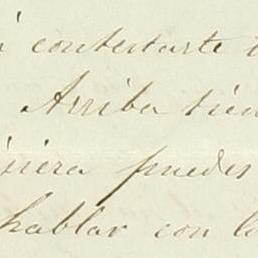 á contestarte
Arriba tien
siera puedes
hablar con l